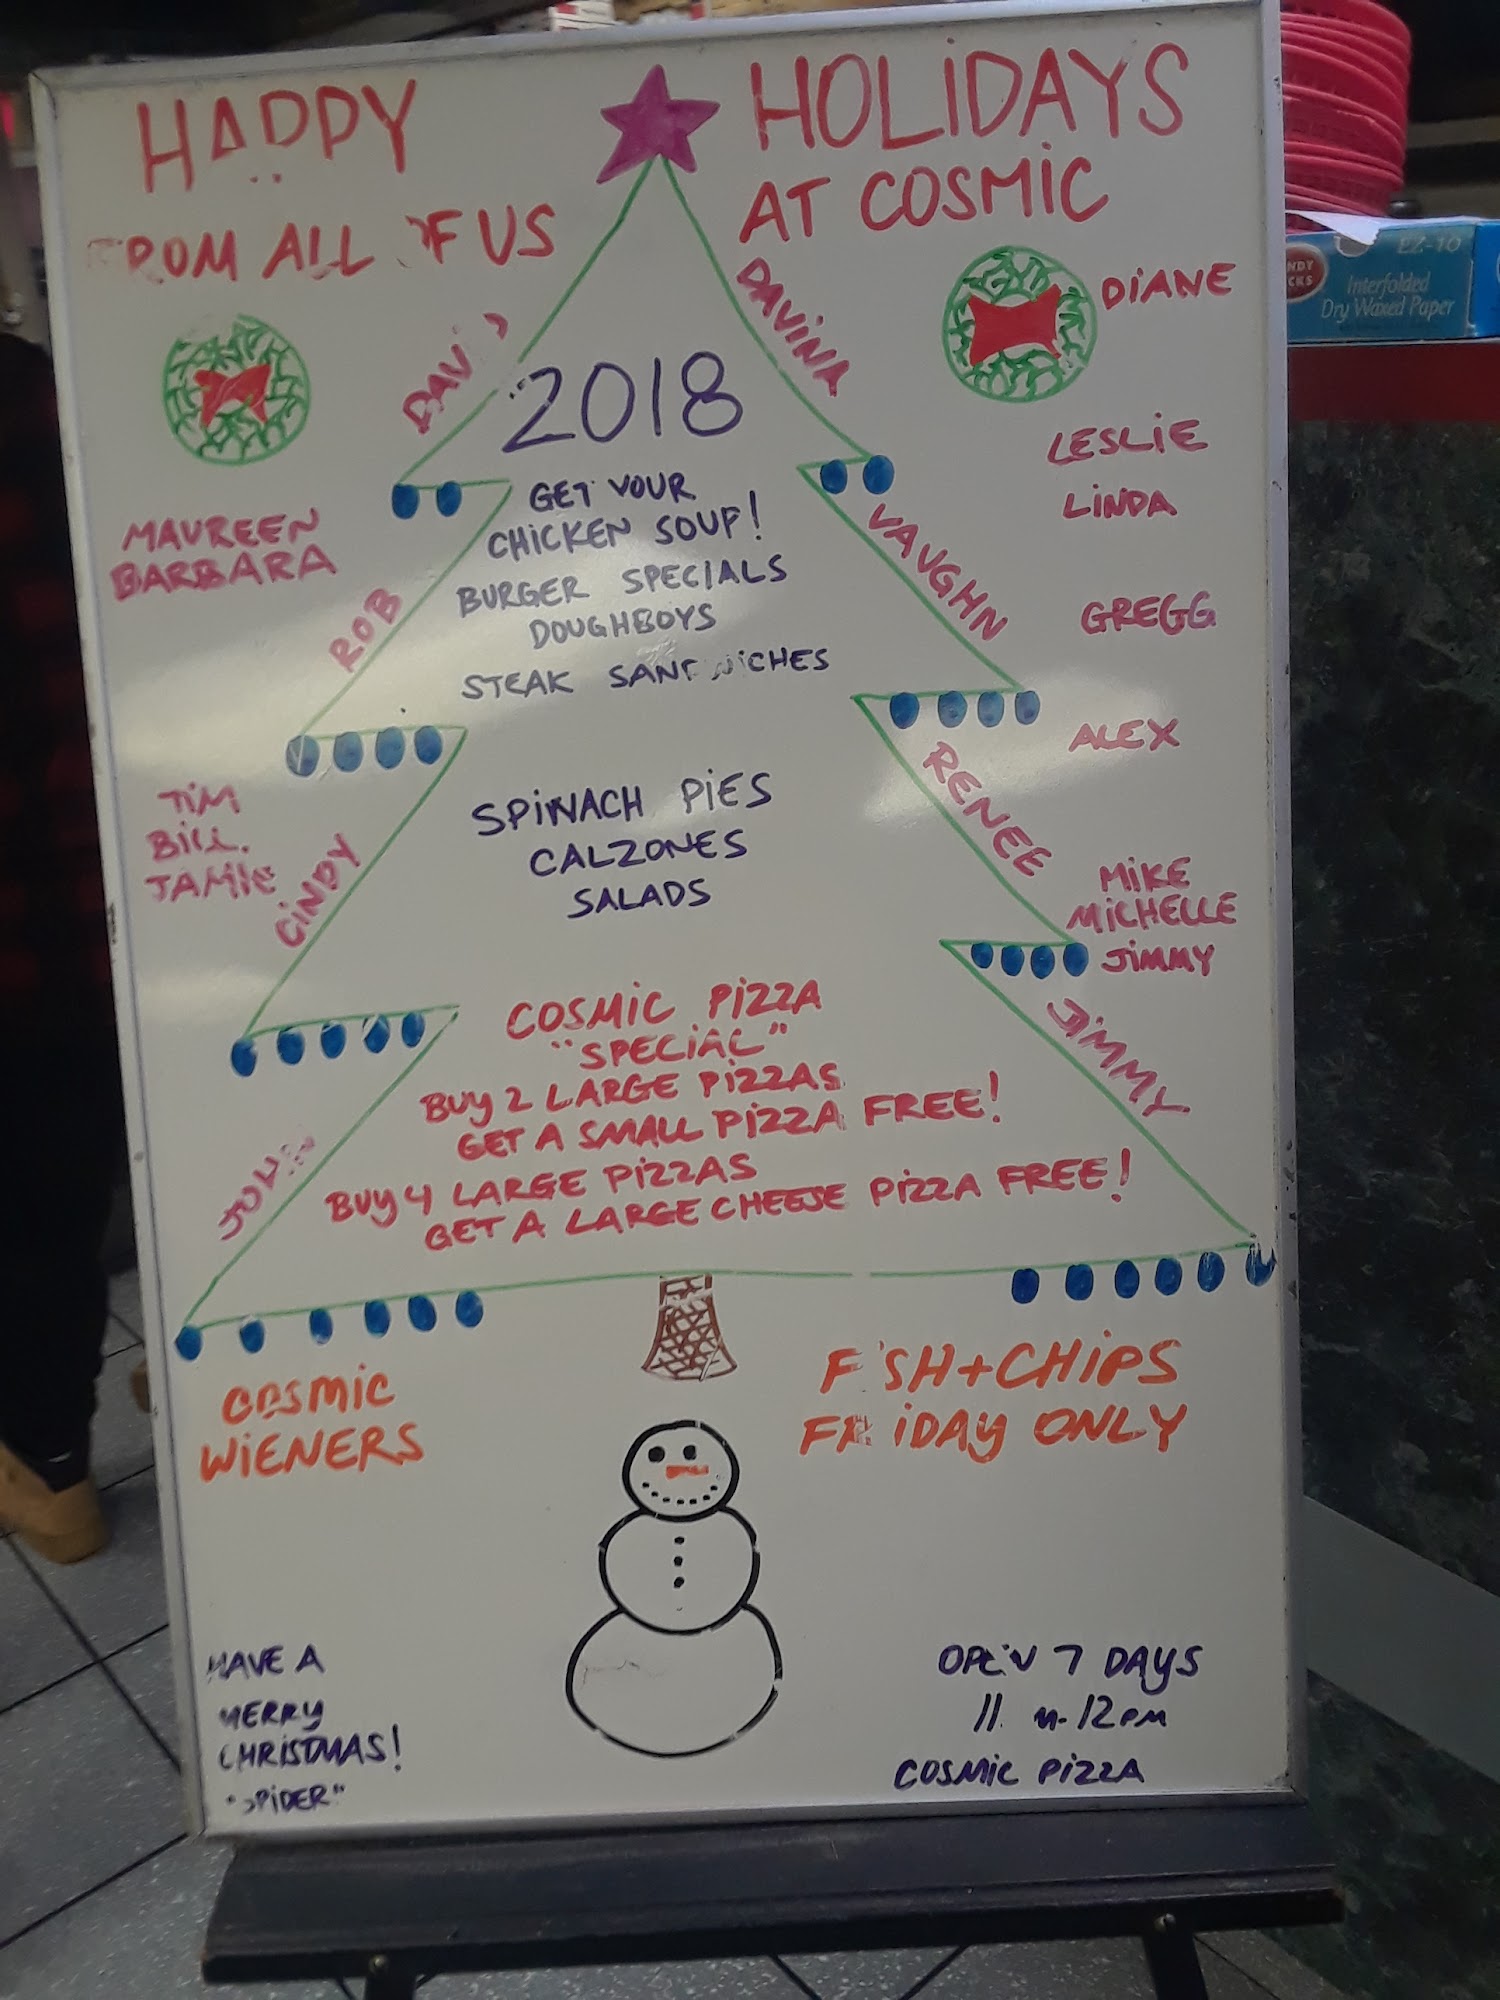 HAPPY HOLIDAYS
FROM ALL OF US AT COSMIC
DAVID
DAVINA
DIANE
2018
LESLIE
LINDA
GET YOUR
CHICKEN SOUP!
BURGER SPECIALS
DOUGHBOYS
STEAK SANDWICHES
MAUREEN
BARBARA
ROB
VAUGHN
GREGG
ALEX
TIM
BILL
JAMIE
CINDY
SPINACH PIES
CALZONES
SALADS
RENEE
MIKE
MICHELLE
JIMMY
JIMMY
COSMIC PIZZA
"SPECIAL"
BUY 2 LARGE PIZZAS
GET A SMALL PIZZA FREE!
BUY 4 LARGE PIZZAS
GET A LARGE CHEESE PIZZA FREE!
JOHN
COSMIC
WIENERS
FISH+CHIPS
FRIDAY ONLY
HAVE A
MERRY
CHRISTMAS!
"SPIDER"
OPEN 7 DAYS
11 -12PM
COSMIC PIZZA
EZ-10
Interfolded
Dry Waxed Paper